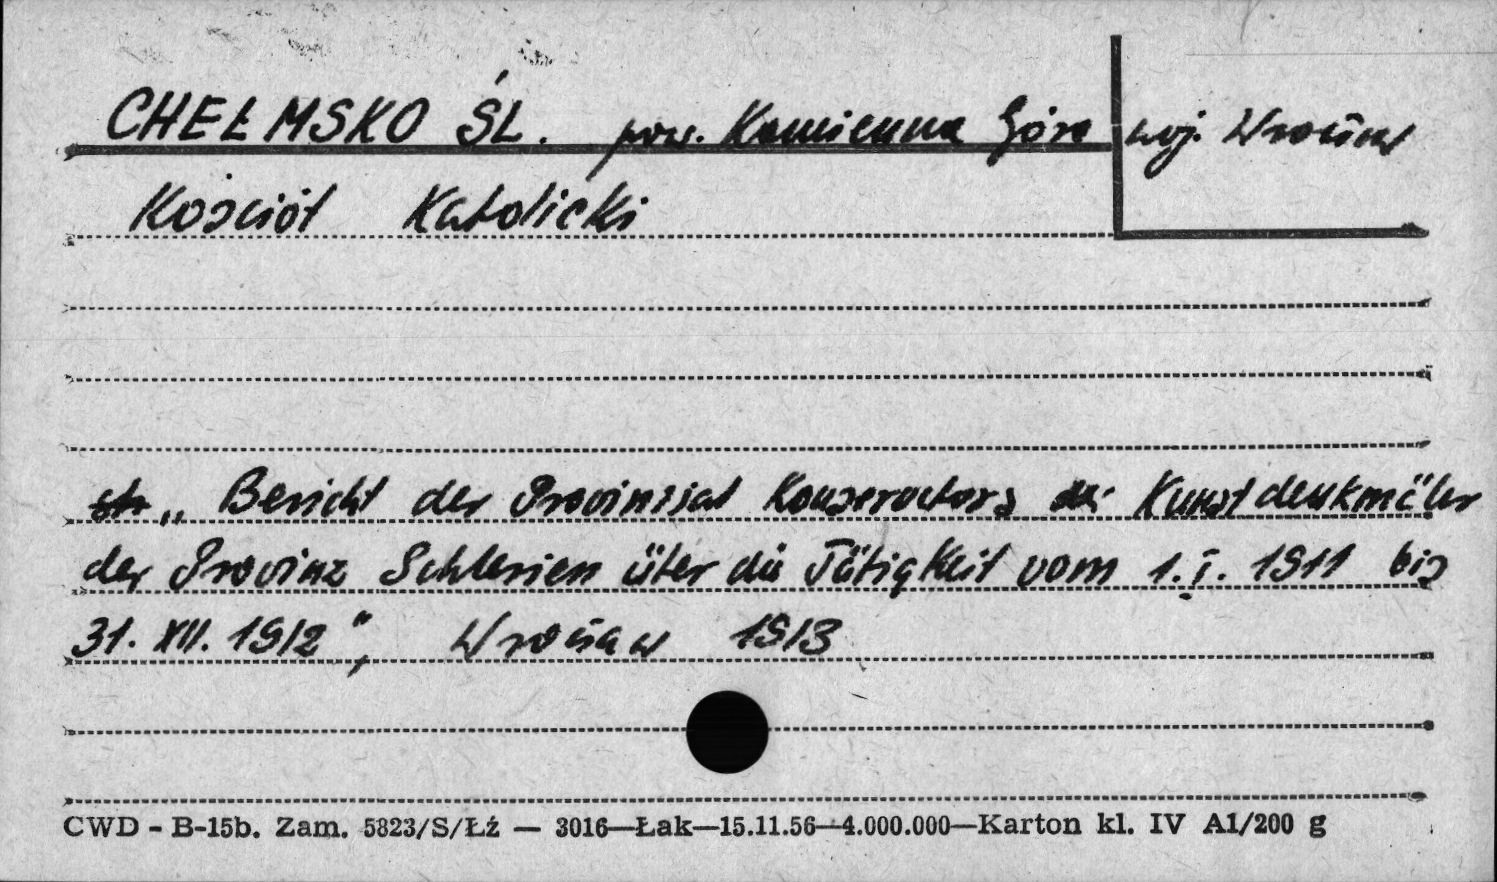 CHEŁMSKO ŚL. pow. Kamienna Góra woj. Wrocław
Kościół Katolicki
„Bericht des Provinzial Konservators der Kunstdenkmäler
der Provinz Schlesien über die Tätigkeit vom 1.I.1911 bis
31.XII.1912”, Wrocław 1913
CWD - B-15b. Zam. 5823/S/Łź — 3016—Łak—15.11.56—4.000.000—Karton kl. IV A1/200 g